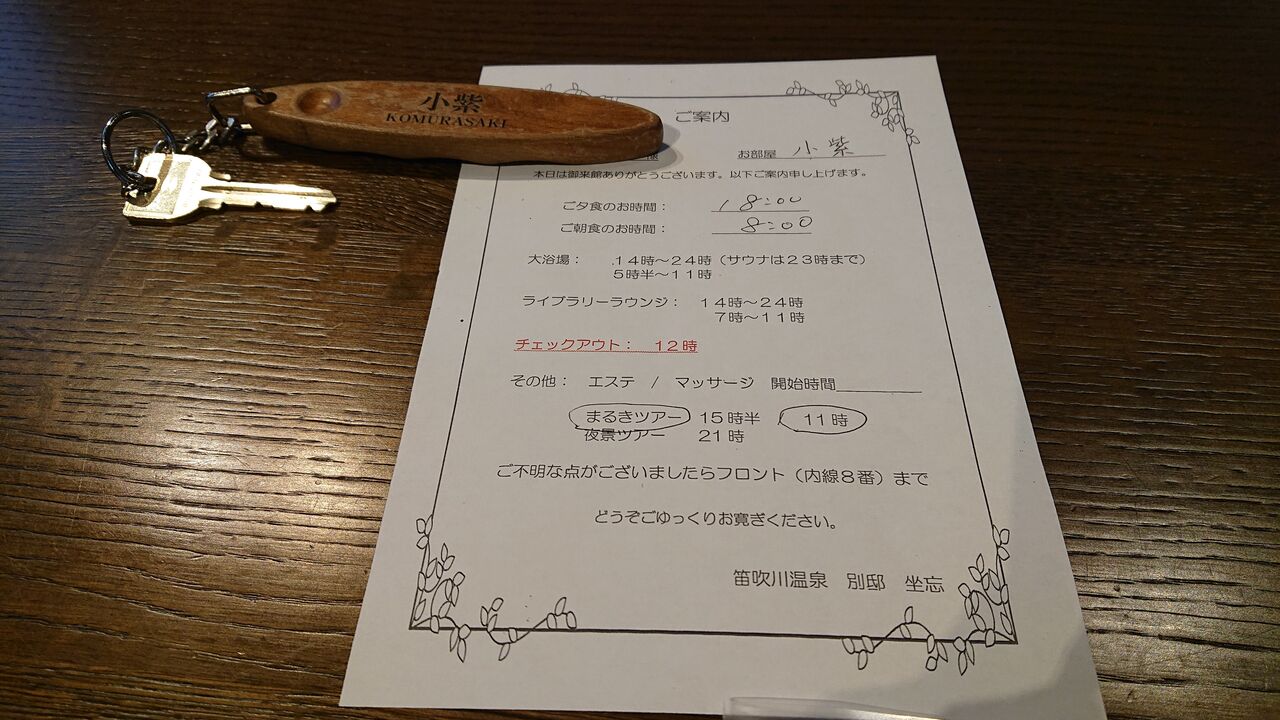 小紫
KOMURASAKI
ご案内
様 お部屋 小紫
本日は御来館ありがとうございます。以下ご案内申し上げます。
ご夕食のお時間： 18:00
ご朝食のお時間： 8:00
大浴場： １４時～２４時（サウナは２３時まで）
５時半～１１時
ライブラリーラウンジ： １４時～２４時
７時～１１時
チェックアウト： １２時
その他： エステ / マッサージ 開始時間
まるきツアー 15時半 11時
夜景ツアー 21時
ご不明な点がございましたらフロント（内線８番）まで
どうぞごゆっくりお寛ぎください。
笛吹川温泉 別邸 坐忘